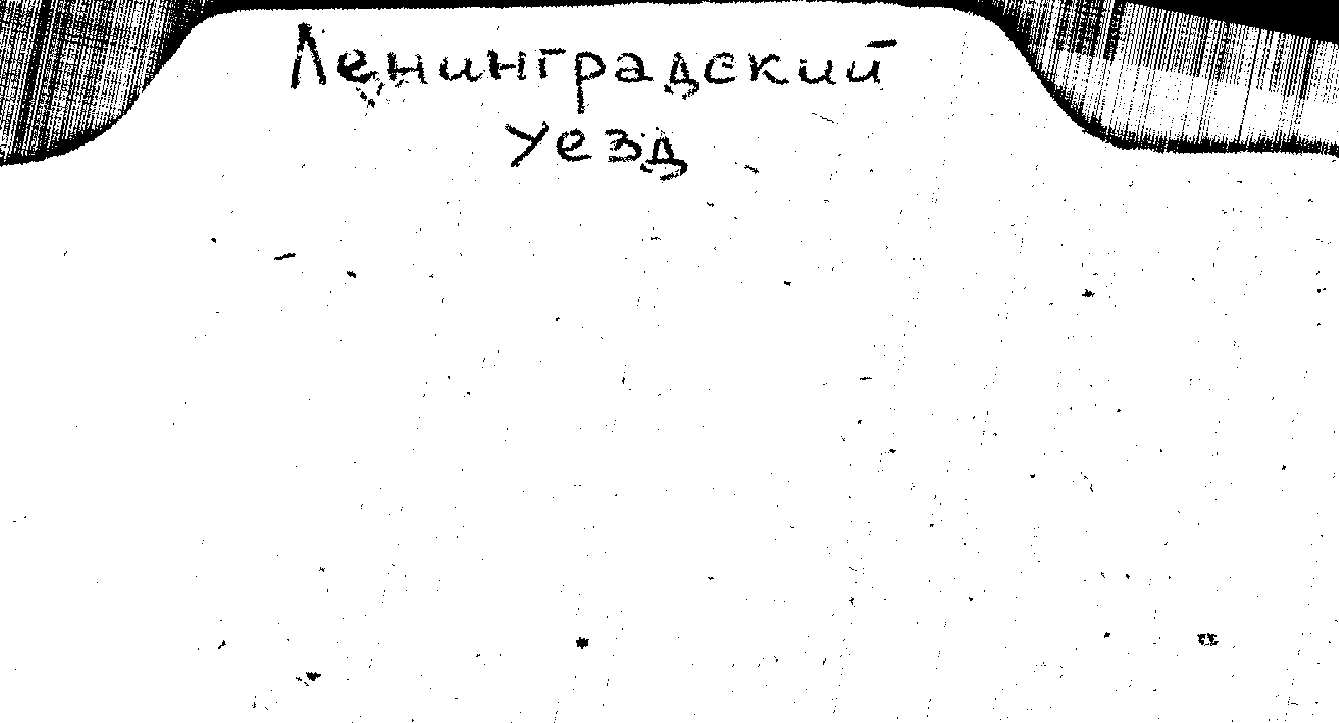 Ленинградский
уезд